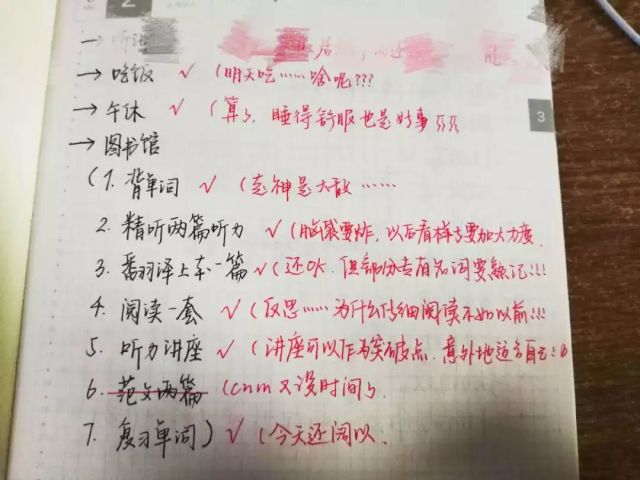 2
→ 听
→ 吃饭 ✓ (明天吃……啥呢???
→ 午休 ✓ (算了, 睡得舒服也是好事
3
→ 图书馆
(1. 背单词 ✓ (走神是大敌……
2. 精听两篇听力 ✓ (脑袋要炸, 以后看样子要加大力度.
3. 翻译上本一篇 ✓ (还OK. 但部分专有名词要熟记!!!
4. 阅读一套 ✓ (反思……为什么仔细阅读不如以前!!!
5. 听力讲座 ✓ (讲座可以作为突破点. 意外地适合自己!
6. 范文两篇 (cnm又没时间了.
7. 复习单词) ✓ (今天还阔以.